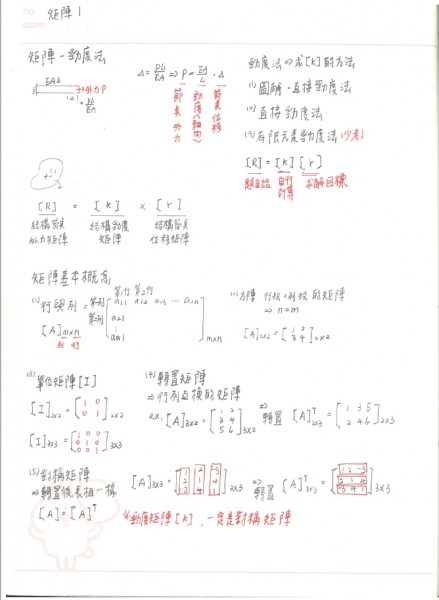 no. 矩陣 1
date.
矩陣-勁度法
EAL
→外力P
Δ = PL/EA
Δ = PL/EA ⇒ P = EA/L · Δ
節點外力
勁度(軸向)
節點位移
勁度法 ⇒ 求[K]的方法
(1) 圖解-直接勁度法
(2) 直接勁度法
(3) 有限元素勁度法(少考)
[R] = [K] [r]
題目給 自行計算 求解目標
[R] = [K] × [r]
結構節點外力矩陣 結構勁度矩陣 結構節點位移矩陣
矩陣基本概念
(1) 行與列 = 第1行 第2行
第1列 a11 a12 a13 … a1n
第2列 a21
am1
m×n
[A]m×n
列 行
(2) 方陣 行數=列數的矩陣
⇒ n=m
[A]2×2 = [1 2
3 4]2×2
(3) 單位矩陣 [I]
[I]2×2 = [1 0
0 1]2×2
[I]3×3 = [1 0 0
0 1 0
0 0 1]3×3
(4) 轉置矩陣
⇒ 行列互換的矩陣
ex. [A]3×2 = [1 2
3 4
5 6]3×2
⇒ 轉置 [A]ᵀ2×3 = [1 3 5
2 4 6]2×3
(5) 對稱矩陣
⇒ 轉置後長相一樣
[A] = [A]ᵀ
[A]3×3 = [1 2 -3
2 1 4
-3 4 1]3×3
⇒ 轉置 [A]ᵀ3×3 = [1 2 -3
2 1 4
-3 4 1]3×3
勁度矩陣[K],一定是對稱矩陣